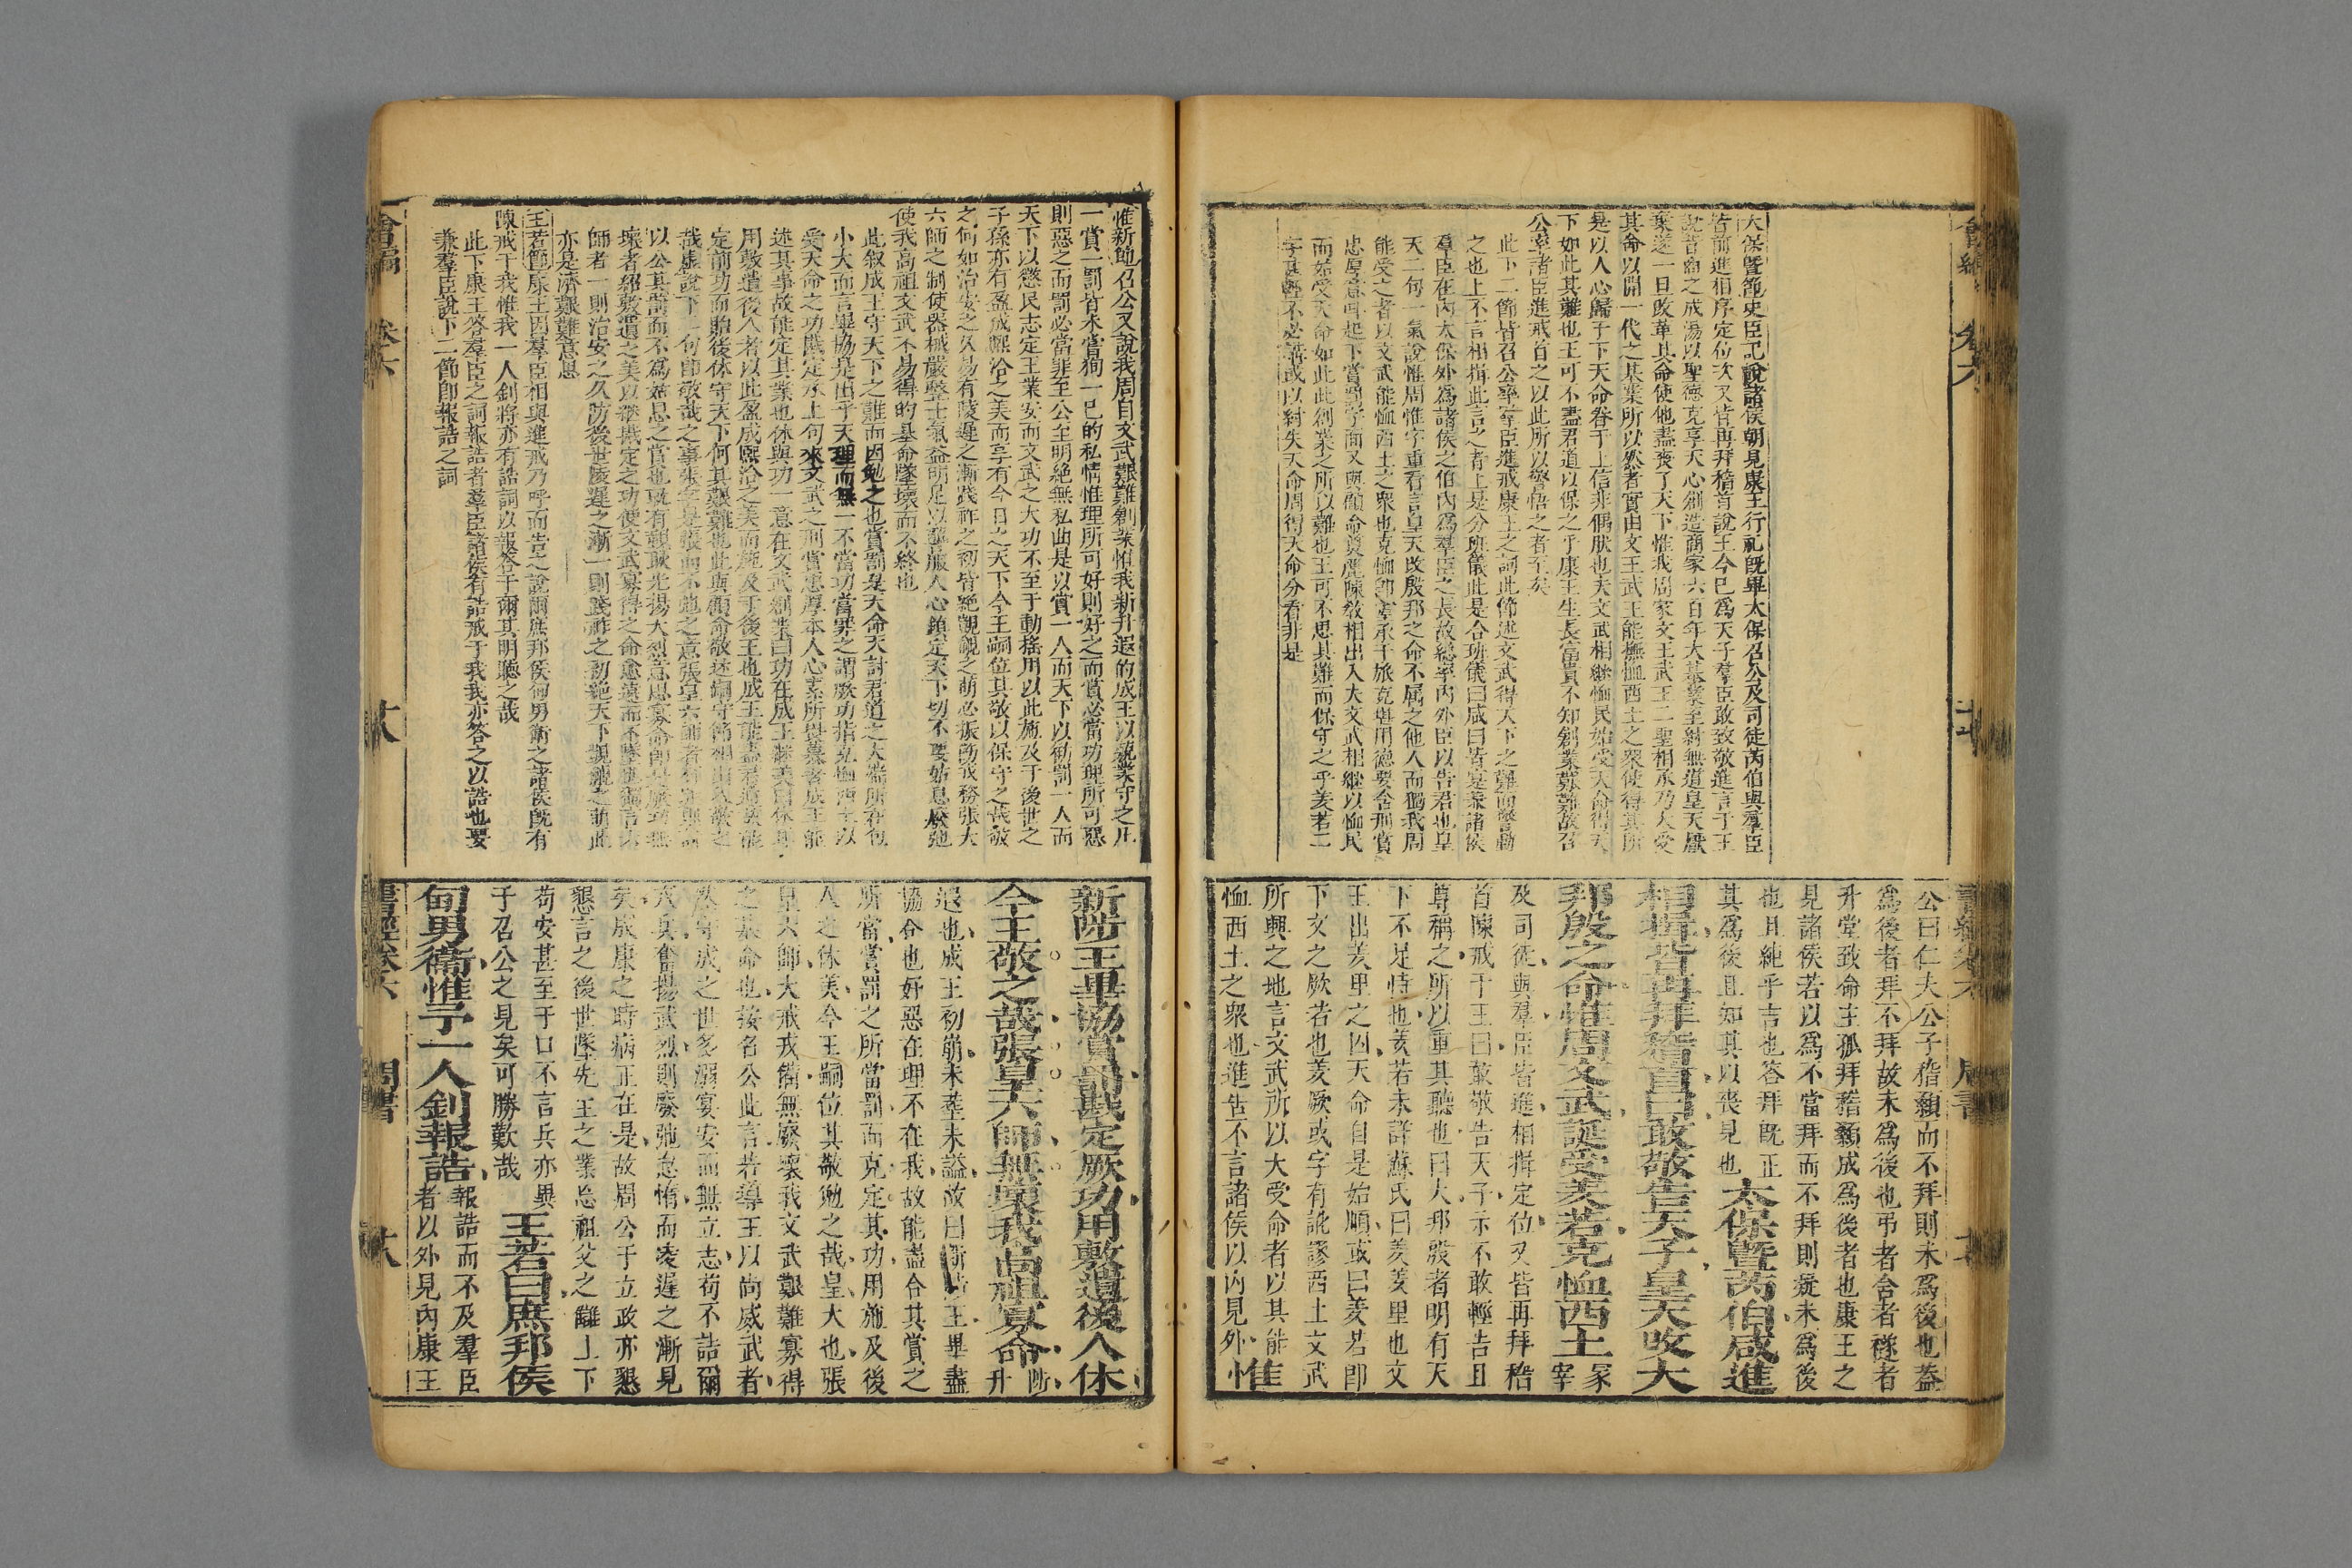 大保暨節史臣記說諸侯朝見康王行礼既畢大保召公及司徒芮伯與羣臣
皆前進相序定位次又皆再拜稽首說王今已爲天子羣臣敢致敬進言于王
說昔商之成湯以聖德克享天心創造商家六百年大基業至紂無道皇天厭
棄遂一旦改革其命使他盡喪了天下惟我周家文王武王二聖相承乃大受
其命以開一代之基業所以然者實由文王武王能撫恤西土之衆使得其所
是以人心歸于下天命眷于上信非偶肰也夫文武相繼恤民始受天命得天
下如此其難也王可不盡君道以保之乎康王生長富貴不知創業艱難故召
公率諸臣進戒首之以此所以警悟之者至矣
此下二節皆召公率羣臣進戒康王之詞此節述文武得天下之難而警動
之也上不言相揖此言之者上是分班儀此是合班儀曰咸曰皆寔兼諸侯
羣臣在內太保外爲諸侯之伯內爲羣臣之長故總率內外臣以告君也皇
天二句一氣說惟周惟字重看言皇天改殷邦之命不屬之他人而獨我周
能受之者以文武能恤西土之衆也克恤卽善承于旅克堪用德要含刑賞
忠厚意呌起下賞罰字面又與顧命奠麗陳敎相出入大文武相繼以恤民
而始受天命如此此創業之所以難也王可不思其難而保守之乎羑若二
字甚輕不必講或以紂失天命周得天命分看非是
公曰仁夫公子稽顙而不拜則未爲後也葢
爲後者拜不拜故未爲後也弔者含者襚者
升堂致命主孤拜稽顙成爲後者也康王之
見諸侯若以爲不當拜而不拜則疑未爲後
也且純乎吉也答拜既正
其爲後且知其以喪見也太保暨芮伯咸進
相揖皆再拜稽首曰敢敬告天子皇天改大
邦殷之命惟周文武誕受羑若克恤西土冢
宰
及司徒與羣臣皆進相揖定位又皆再拜稽
首陳戒于王曰敢敬告天子示不敢輕告且
尊稱之所以重其聽也曰大邦殷者明有天
下不足恃也羑若未詳蘇氏曰羑羑里也文
王出羑里之囚天命自是始順或曰羑若卽
下文之厥若也羑厥或字有訛謬西土文武
所興之地言文武所以大受命者以其能
恤西土之衆也進告不言諸侯以內見外惟
會編 卷六 十七
書經卷六 周書 十七
惟新節召公又說我周自文武艱難創業惟我新升遐的成王以競業守之凡
一賞一罰皆未嘗狥一己的私情惟理所可好則好之而賞必當功理所可惡
則惡之而罰必當罪至公至明絶無私曲是以賞一人而天下以勸罰一人而
天下以懲民志定王業安而文武之大功不至于動搖用以此施及于後世之
子孫亦有盈成熙洽之美而享有今日之天下今王嗣位其敬以保守之哉敬
之何如治安之久易有陵遲之漸踐祚之初皆絶覬覦之萌必振勵戎務張大
六師之制使器械嚴整士氣益明足以讋服人心鎭定天下切不要姑息廢弛
使我高祖文武不易得的基命墜壞而不終也
此叙成王守天下之難而因勉之也賞罰是天命天討君道之大端所在包
小大而言畢協是出乎天理而無一不當功當罪之謂厥功指克恤西土以
受天命之功戡定承上句來文武之刑賞忠厚本人心素所畏慕者成王能
述其事故能定其業也休與功一意在文武創業曰功在成王繼美曰休專
用敷遺後人者以此盈成熙洽之美而施及于後王也成王能盡君道旣能
定前功而貽後休守天下何其艱難也此與顧命敬迓嗣守節相出入敬之
哉虛說下二句卽敬哉之事張字是張而不弛之意張皇六師者
以公其罰而不爲姑息之習也旣有覲耿光揚大烈意思寡命卽是厥功無
壞者紹敷遺之美以嗣戡定之功使文武寡得之命愈遠而不墜也
師者一則治安之久防後世陵遲之漸一則踐祚之初絶天下覬覦之萌此
亦是濟艱難意思
王若節康王因羣臣相與進戒乃呼而告之說爾庶邦侯甸男衛之諸侯旣有
陳戒于我惟我一人釗將亦有誥詞以報答于爾其明聽之哉
此下康王答羣臣之詞報誥者羣臣諸侯有誥戒于我我亦答之以誥也要
兼羣臣說下二節卽報誥之詞
新陟王畢協賞罰戡定厥功用敷遺後人休
今王敬之哉張皇六師無壞我高祖寡命陟
升
遐也成王初崩未葬未謚故曰新陟王畢盡
協合也好惡在理不在我故能盡合其賞之
所當賞罰之所當罰而克定其功用施及後
人之休美今王嗣位其敬勉之哉皇大也張
皇六師大戒戎備無廢壞我文武艱難寡得
之基命也按召公此言若導王以尚威武者
然守成之世多溺宴安而無立志苟不詰爾
戎兵奮揚武烈則廢弛怠惰而陵遲之漸見
矣成康之時病正在是故周公于立政亦懇
懇言之後世墜先王之業忘祖父之讎上下
苟安甚至于口不言兵亦異
于召公之見矣可勝歎哉王若曰庶邦侯
甸男衛惟予一人釗報誥報誥而不及羣臣
者以外見內康王
會編 卷六 十八
書經卷六 周書 十八